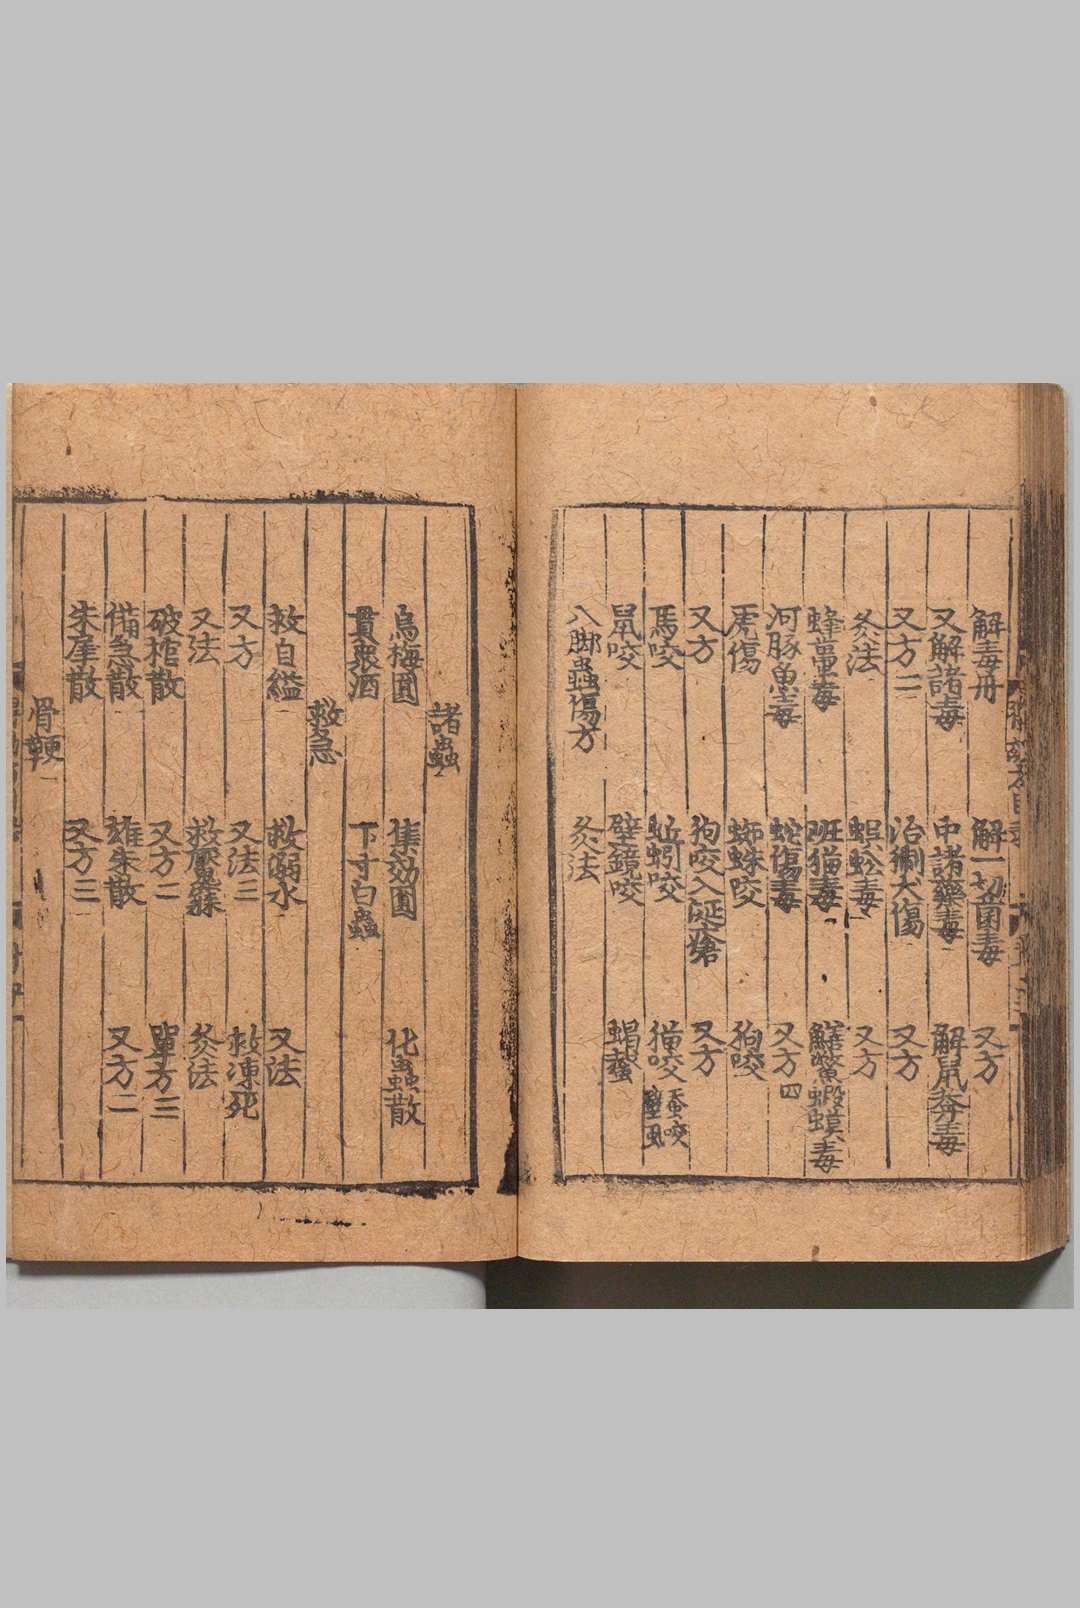 解毒丹 解一切菌毒 又方
又解諸毒 中諸藥毒 解鼠莽毒
又方二 治猘犬傷 又方
灸法 蜈蚣毒 又方
蜂蠆毒 斑猫毒 鱔鱉蝦蟆毒
河豚魚毒 蛇傷毒 又方四
虎傷 蜘蛛咬 狗咬
又方 狗咬入涎瘡 又方
馬咬 蚯蚓咬 猫咬 蚕咬
鼠咬 壁鏡咬 蝎螫
八脚蟲傷方 灸法
諸蟲
烏梅圓 集効圓 化蟲散
貫衆酒 下寸白蟲
救急
救自縊 救溺水 又法
又方 又法三 救凍死
又法 救魘寐 灸法
破棺散 又方二 單方三
備急散 雄朱散 又方二
朱犀散 又方三
骨鞕